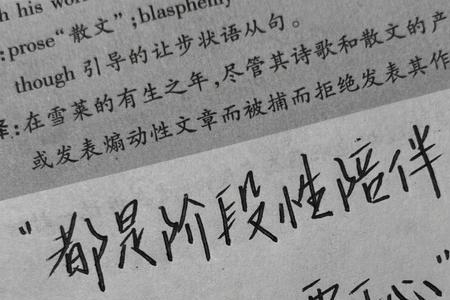 his wor
: prose“散文”;blasphemy
though 引导的让步状语从句。
译:在雪莱的有生之年,尽管其诗歌和散文的产
或发表煽动性文章而被捕而拒绝发表其作
“都是阶段性陪伴